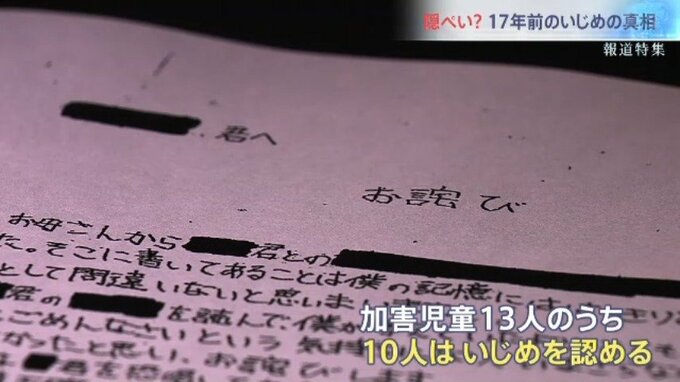 隠ぺい? 17年前のいじめの真相
報道特集
君へ
お詫び
お母さんから 君との
た。そこに書いてあることは僕の記憶に
として間違いないと思いま
君の を読んで、僕が
ごめんなさいという気持
かったと思い、お詫びします
加害児童13人のうち
10人は いじめを認める